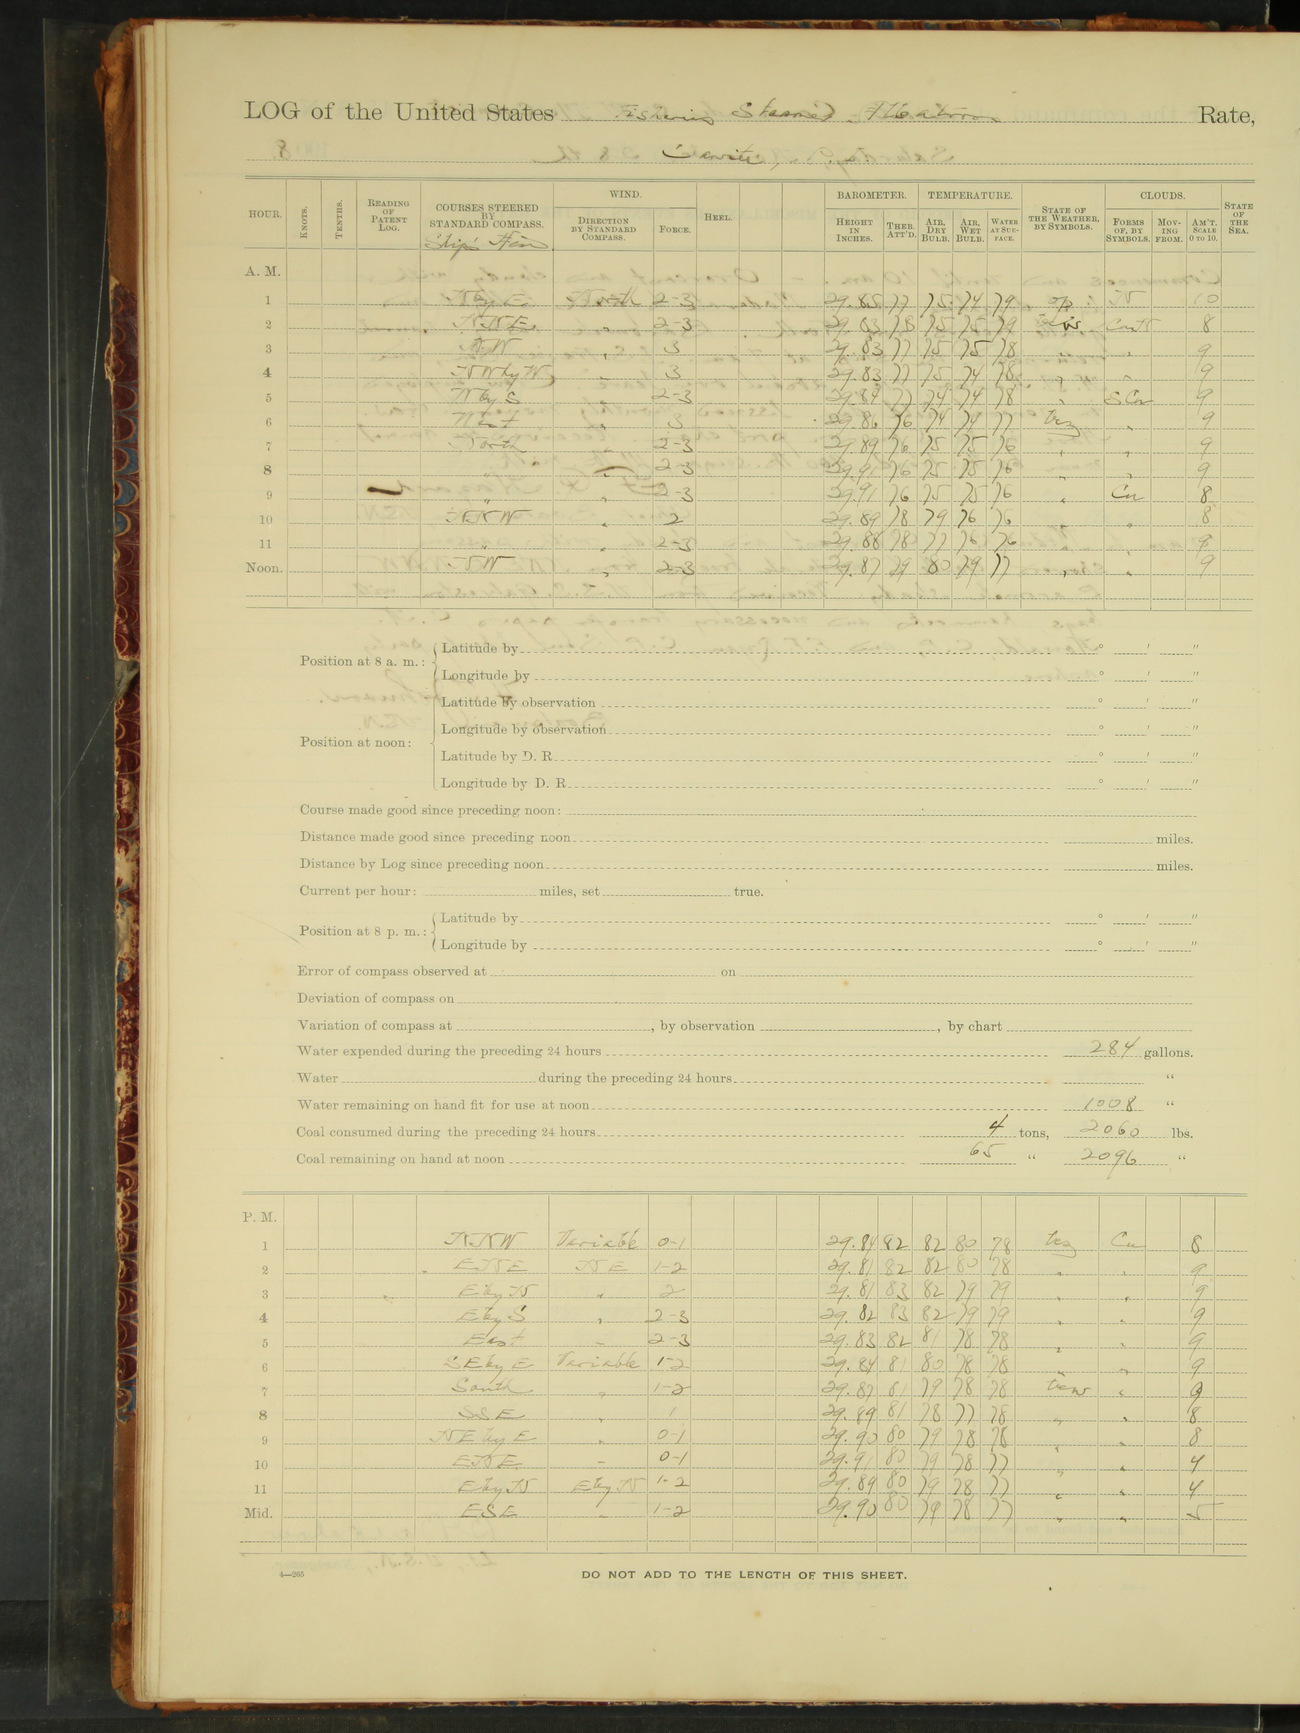 LOG of the United States Fisheries Steamer Albatross Rate,
Cavite, P. I.
HOUR. KNOTS. TENTHS. READING OF PATENT LOG. COURSES STEERED BY STANDARD COMPASS. WIND. DIRECTION BY STANDARD COMPASS. FORCE. HEEL. BAROMETER. HEIGHT IN INCHES. THER. ATT'D. TEMPERATURE. AIR, DRY BULB. AIR, WET BULB. WATER AT SURFACE. STATE OF THE WEATHER, BY SYMBOLS. CLOUDS. FORMS OF, BY SYMBOLS. MOVING FROM. AM'T, SCALE 0 TO 10. STATE OF THE SEA.
Ship's
A. M.
1 N by E North 2-3 29.85 77 75 74 79 N 10
2 NNE " 2-3 29.83 78 75 75 79 8
3 NW " 3 29.83 77 75 75 78 " " 9
4 NW by W " 3 29.83 77 75 74 78 " " 9
5 W by S " 2-3 29.84 77 74 74 78 " S Cu 9
6 West " 3 29.86 76 74 74 77 bcz " 9
7 North " 2-3 29.89 76 75 75 76 " " 9
8 " " 2-3 29.91 76 75 75 76 " " 9
9 " " 2-3 29.91 76 75 75 76 " Cu 8
10 NNW " 2 29.89 78 79 76 76 " " 8
11 " " 2-3 29.88 78 77 76 76 " " 9
Noon. NW " 2-3 29.87 79 80 79 77 " " 9
Position at 8 a. m.: Latitude by ° ' "
Longitude by ° ' "
Latitude by observation ° ' "
Longitude by observation ° ' "
Position at noon:
Latitude by D. R. ° ' "
Longitude by D. R. ° ' "
Course made good since preceding noon:
Distance made good since preceding noon miles.
Distance by Log since preceding noon miles.
Current per hour: miles, set true.
Position at 8 p. m.: Latitude by ° ' "
Longitude by ° ' "
Error of compass observed at on
Deviation of compass on
Variation of compass at , by observation , by chart
Water expended during the preceding 24 hours 284 gallons.
Water during the preceding 24 hours "
Water remaining on hand fit for use at noon 1008 "
Coal consumed during the preceding 24 hours 4 tons, 2060 lbs.
Coal remaining on hand at noon 65 " 2096 "
P. M.
1 NNW Variable 0-1 29.84 82 82 80 78 bcz Cu 8
2 ENE NE 1-2 29.81 82 82 80 78 " " 9
3 E by N " 2 29.81 83 82 79 79 " " 9
4 E by S " 2-3 29.82 83 82 79 79 " " 9
5 East " 2-3 29.83 82 81 78 78 " " 9
6 SE by E Variable 1-2 29.84 81 80 78 78 " " 9
7 South " 1-2 29.87 81 79 78 78 bcw " 9
8 SSE " 1 29.89 81 78 77 78 " " 8
9 NE by E " 0-1 29.90 80 79 78 78 " " 8
10 ENE " 0-1 29.91 80 79 78 77 " " 4
11 E by N E by N 1-2 29.89 80 79 78 77 " " 4
Mid. ESE " 1-2 29.90 80 79 78 77 " " 5
4—265
DO NOT ADD TO THE LENGTH OF THIS SHEET.